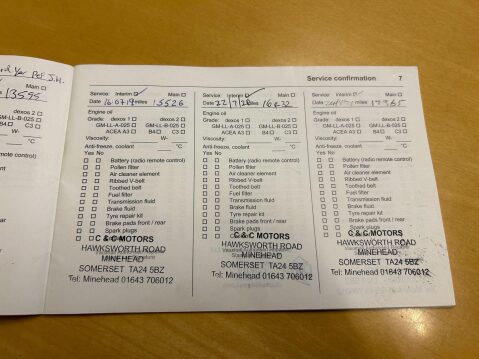 rd Yr Per J.H.
13595
dexos 2 ☐
GM-LL-B-025 ☐
C3 ☐
W-
°C
Service confirmation 7
Service: Interim ☐ Main ☐
Date 16.07.19 miles 15526
Engine oil
Grade: dexos 1 ☐ dexos 2 ☐
GM-LL-A-025 ☐ GM-LL-B-025 ☐
ACEA A3 ☐ B4 ☐ C3 ☐
Viscosity: W-
Anti-freeze, coolant °C
Yes No
☐ ☐ Battery (radio remote control)
☐ ☐ Pollen filter
☐ ☐ Air cleaner element
☐ ☐ Ribbed V-belt
☐ ☐ Toothed belt
☐ ☐ Fuel filter
☐ ☐ Transmission fluid
☐ ☐ Brake fluid
☐ ☐ Tyre repair kit
☐ ☐ Brake pads front / rear
☐ ☐ Spark plugs
C & C MOTORS
HAWKSWORTH ROAD
MINEHEAD
SOMERSET TA24 5BZ
Tel: Minehead 01643 706012
Service: Interim ☐ Main ☐
Date 22/7/20 miles 16432
Engine oil
Grade: dexos 1 ☐ dexos 2 ☐
GM-LL-A-025 ☐ GM-LL-B-025 ☐
ACEA A3 ☐ B4 ☐ C3 ☐
Viscosity: W-
Anti-freeze, coolant °C
Yes No
☐ ☐ Battery (radio remote control)
☐ ☐ Pollen filter
☐ ☐ Air cleaner element
☐ ☐ Ribbed V-belt
☐ ☐ Toothed belt
☐ ☐ Fuel filter
☐ ☐ Transmission fluid
☐ ☐ Brake fluid
☐ ☐ Tyre repair kit
☐ ☐ Brake pads front / rear
☐ ☐ Spark plugs
C & C MOTORS
HAWKSWORTH ROAD
MINEHEAD
SOMERSET TA24 5BZ
Tel: Minehead 01643 706012
Service: Interim ☐ Main ☐
Date miles
Engine oil
Grade: dexos 1 ☐ dexos 2 ☐
GM-LL-A-025 ☐ GM-LL-B-025 ☐
ACEA A3 ☐ B4 ☐ C3 ☐
Viscosity: W-
Anti-freeze, coolant °C
Yes No
☐ ☐ Battery (radio remote control)
☐ ☐ Pollen filter
☐ ☐ Air cleaner element
☐ ☐ Ribbed V-belt
☐ ☐ Toothed belt
☐ ☐ Fuel filter
☐ ☐ Transmission fluid
☐ ☐ Brake fluid
☐ ☐ Tyre repair kit
☐ ☐ Brake pads front / rear
☐ ☐ Spark plugs
C & C MOTORS
HAWKSWORTH ROAD
MINEHEAD
SOMERSET TA24 5BZ
Tel: Minehead 01643 706012